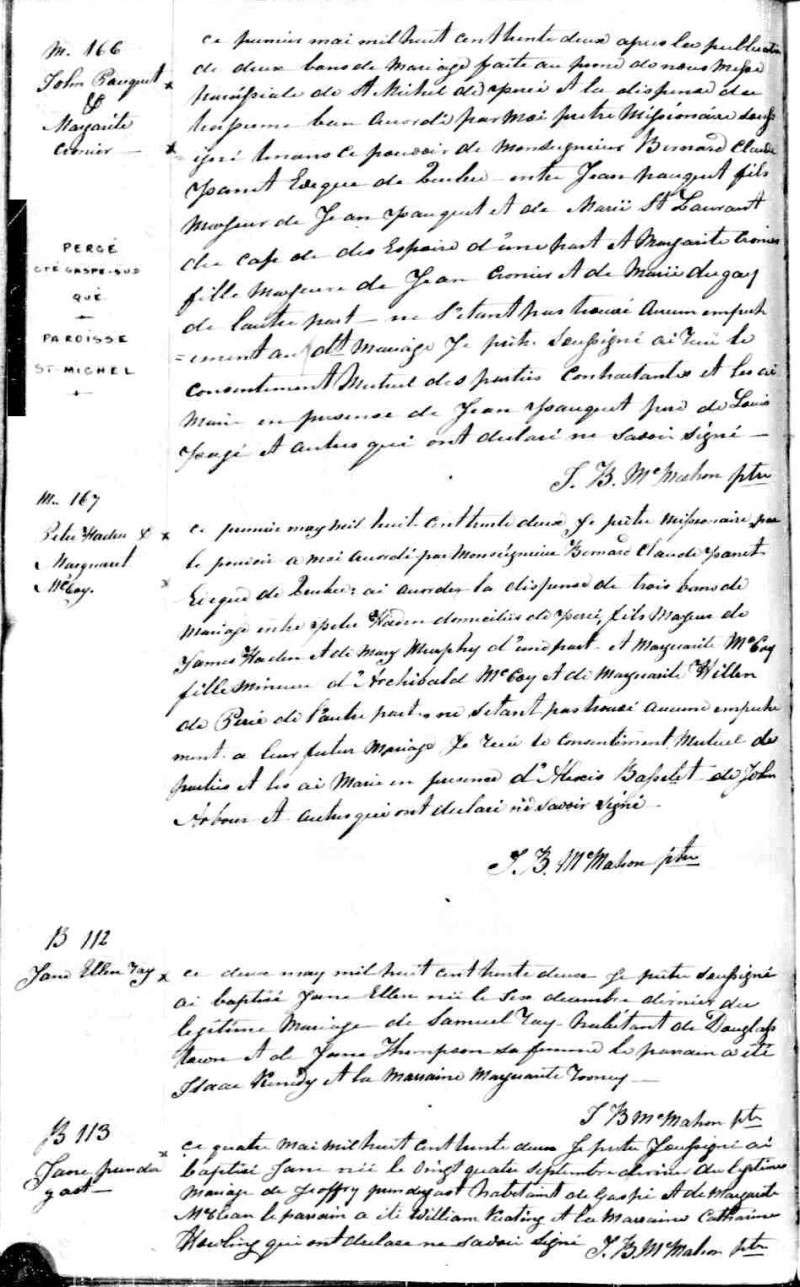 M. 166
John Pauquet
&
Margarite
Cronier
ce premier mai mil huit cent trente deux apres la publication
de deux bans de mariage faite au prone de nous Messe
paroissiale de St Michel de percé et la dispense du
troisieme ban accordé par moi pretre Missionaire Souss
=igné tenans ce pouvoir de Monseigneur Bernard Claude
Panet Evèque de Quebec entre Jean pauquet fils
Majeur de Jean pauquet et de Marië St Laurant
du cap de des Espoire d'une part et Margarite Cronier
fille Majeure de Jean Cronier et de Marië dugay
de l'autre part ne S'etant pas trouvé aucun empech
=ement au dtt Mariage Je prêtre Soussigné ai recu le
consentiment Mutuel des parties contractantes et les ai
Marié en presence de Jean pauquet pere de Louis
et autres qui ont declaré ne savoir signé
J. B. McMahon ptre
PERCÉ
CTÉ GASPÉ-SUD
QUÉ
PAROISSE
ST-MICHEL
M. 167
Peter Haden &
Margaret
McCoy.
ce premier may mil huit cent trente deux Je prêtre Missionaire par
le pouvoir a moi accordé par Monséigneur Bernard Claude Panet
Evèque de Quebec ai accorder la dispense de trois bans de
Mariage entre peter Haden domiciliés de percé, fils Majeur de
James Haden et de Mary Murphy d'une part et Marguarite McCoy
fille mineure d'Archibald McCoy et de Marguarite Willen
de Percé de l'autre part. ne sétant pas trouvé aucune empeche
ment a leur futur Mariage Je recu le consentiment Mutuel de
parties et les ai Marié en presence d'Alexis Basselet de John
Arbour et autres qui ont declaré ne savoir signé.
J. B. McMahon ptre
B 112
Jane Ellen Tay
ce deux may mil huit cent trente deux Je prêtre soussigné
ai baptisé Jane Ellen néé le six decembre dernier du
legitime Mariage de Samuel Tay habitant de Douglass
town et de Jane Thompson sa femme le parain a été
Isaac Kenedy et la Marraine Marguarite Tooney
J B McMahon ptre
B 113
Jane prender
gast
ce quatre mai mil huit cent trente deux Je prêtre Soussigné ai
baptisé Jane néé le vingt quatre septembre dernier du legitime
Mariage de Jeoffry prendegast habitant de Gaspé et de Margarite
McLean le parain a été William Keating et la Marraine Catharine
Howling qui ont declaré ne savoir signé J. B. McMahon ptre